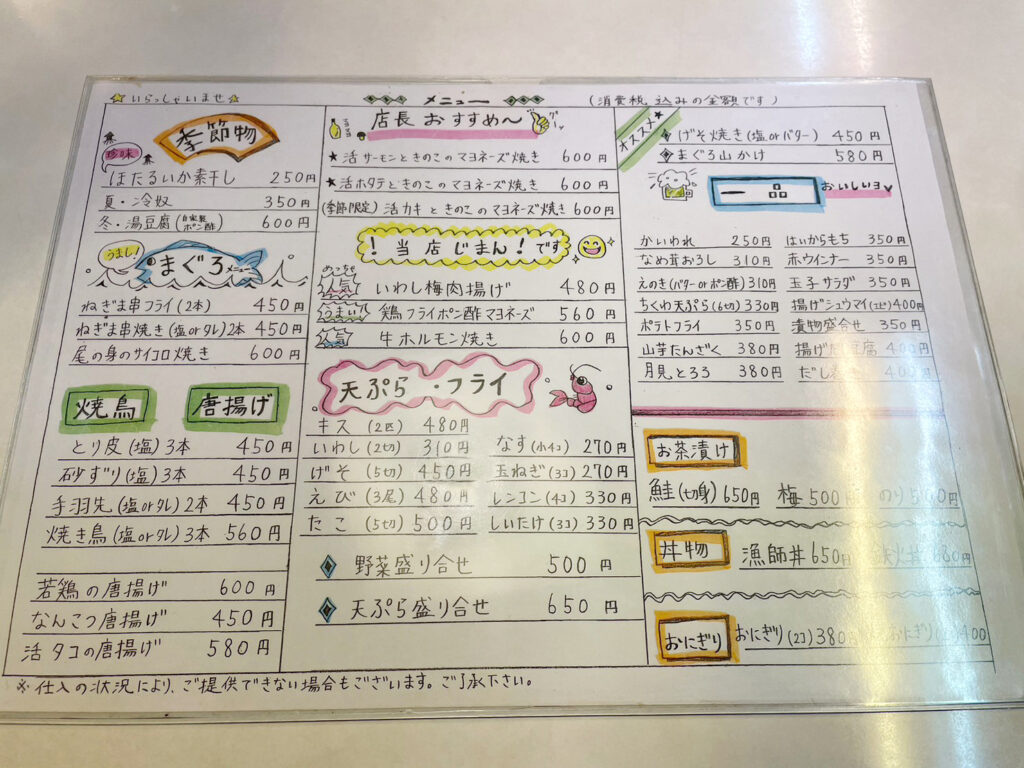 いらっしゃいませ
メニュー
(消費税 込みの金額です)
季節物
珍味
ほたるいか素干し 250円
夏・冷奴 350円
冬・湯豆腐(自家製ポン酢) 600円
うまし!
まぐろメニュー
ねぎま串フライ(2本) 450円
ねぎま串焼き(塩orタレ)2本 450円
尾の身のサイコロ焼き 600円
焼鳥 唐揚げ
とり皮(塩)3本 450円
砂ずり(塩)3本 450円
手羽先(塩orタレ)2本 450円
焼き鳥(塩orタレ)3本 560円
若鶏の唐揚げ 600円
なんこつ唐揚げ 450円
活タコの唐揚げ 580円
店長おすすめ〜
★活サーモンときのこのマヨネーズ焼き 600円
★活ホタテときのこのマヨネーズ焼き 600円
(季節限定)活カキときのこのマヨネーズ焼き 600円
!当店じまん!です
人気 いわし梅肉揚げ 480円
うまい 鶏フライポン酢マヨネーズ 560円
人気 牛ホルモン焼き 600円
天ぷら・フライ
キス (2匹) 480円
いわし(2切) 310円
げそ (5切) 450円
えび (3尾) 480円
たこ (5切) 500円
なす(小4コ) 270円
玉ねぎ(3コ) 270円
レンコン(4コ) 330円
しいたけ(3コ) 330円
野菜盛り合せ 500円
天ぷら盛り合せ 650円
オススメ★
げそ焼き(塩orバター) 450円
まぐろ山かけ 580円
一品
おいしいヨ
かいわれ 250円
なめ茸おろし 310円
えのき(バターorポン酢) 310円
ちくわ天ぷら(6切) 330円
ポテトフライ 350円
山芋たんざく 380円
月見とろろ 380円
はいからもち 350円
ホウインナー 350円
玉子サラダ 350円
揚げシュウマイ(コピ)400円
漬物盛合せ 350円
揚げだし豆腐 400円
だし 400
お茶漬け
鮭(切身) 650円 梅 500円 のり 500円
丼物
漁師丼 650円 鉄火丼 680円
おにぎり
おにぎり(2コ) 380円 おにぎり 400
※仕入の状況により、ご提供できない場合もございます。ご了承下さい。